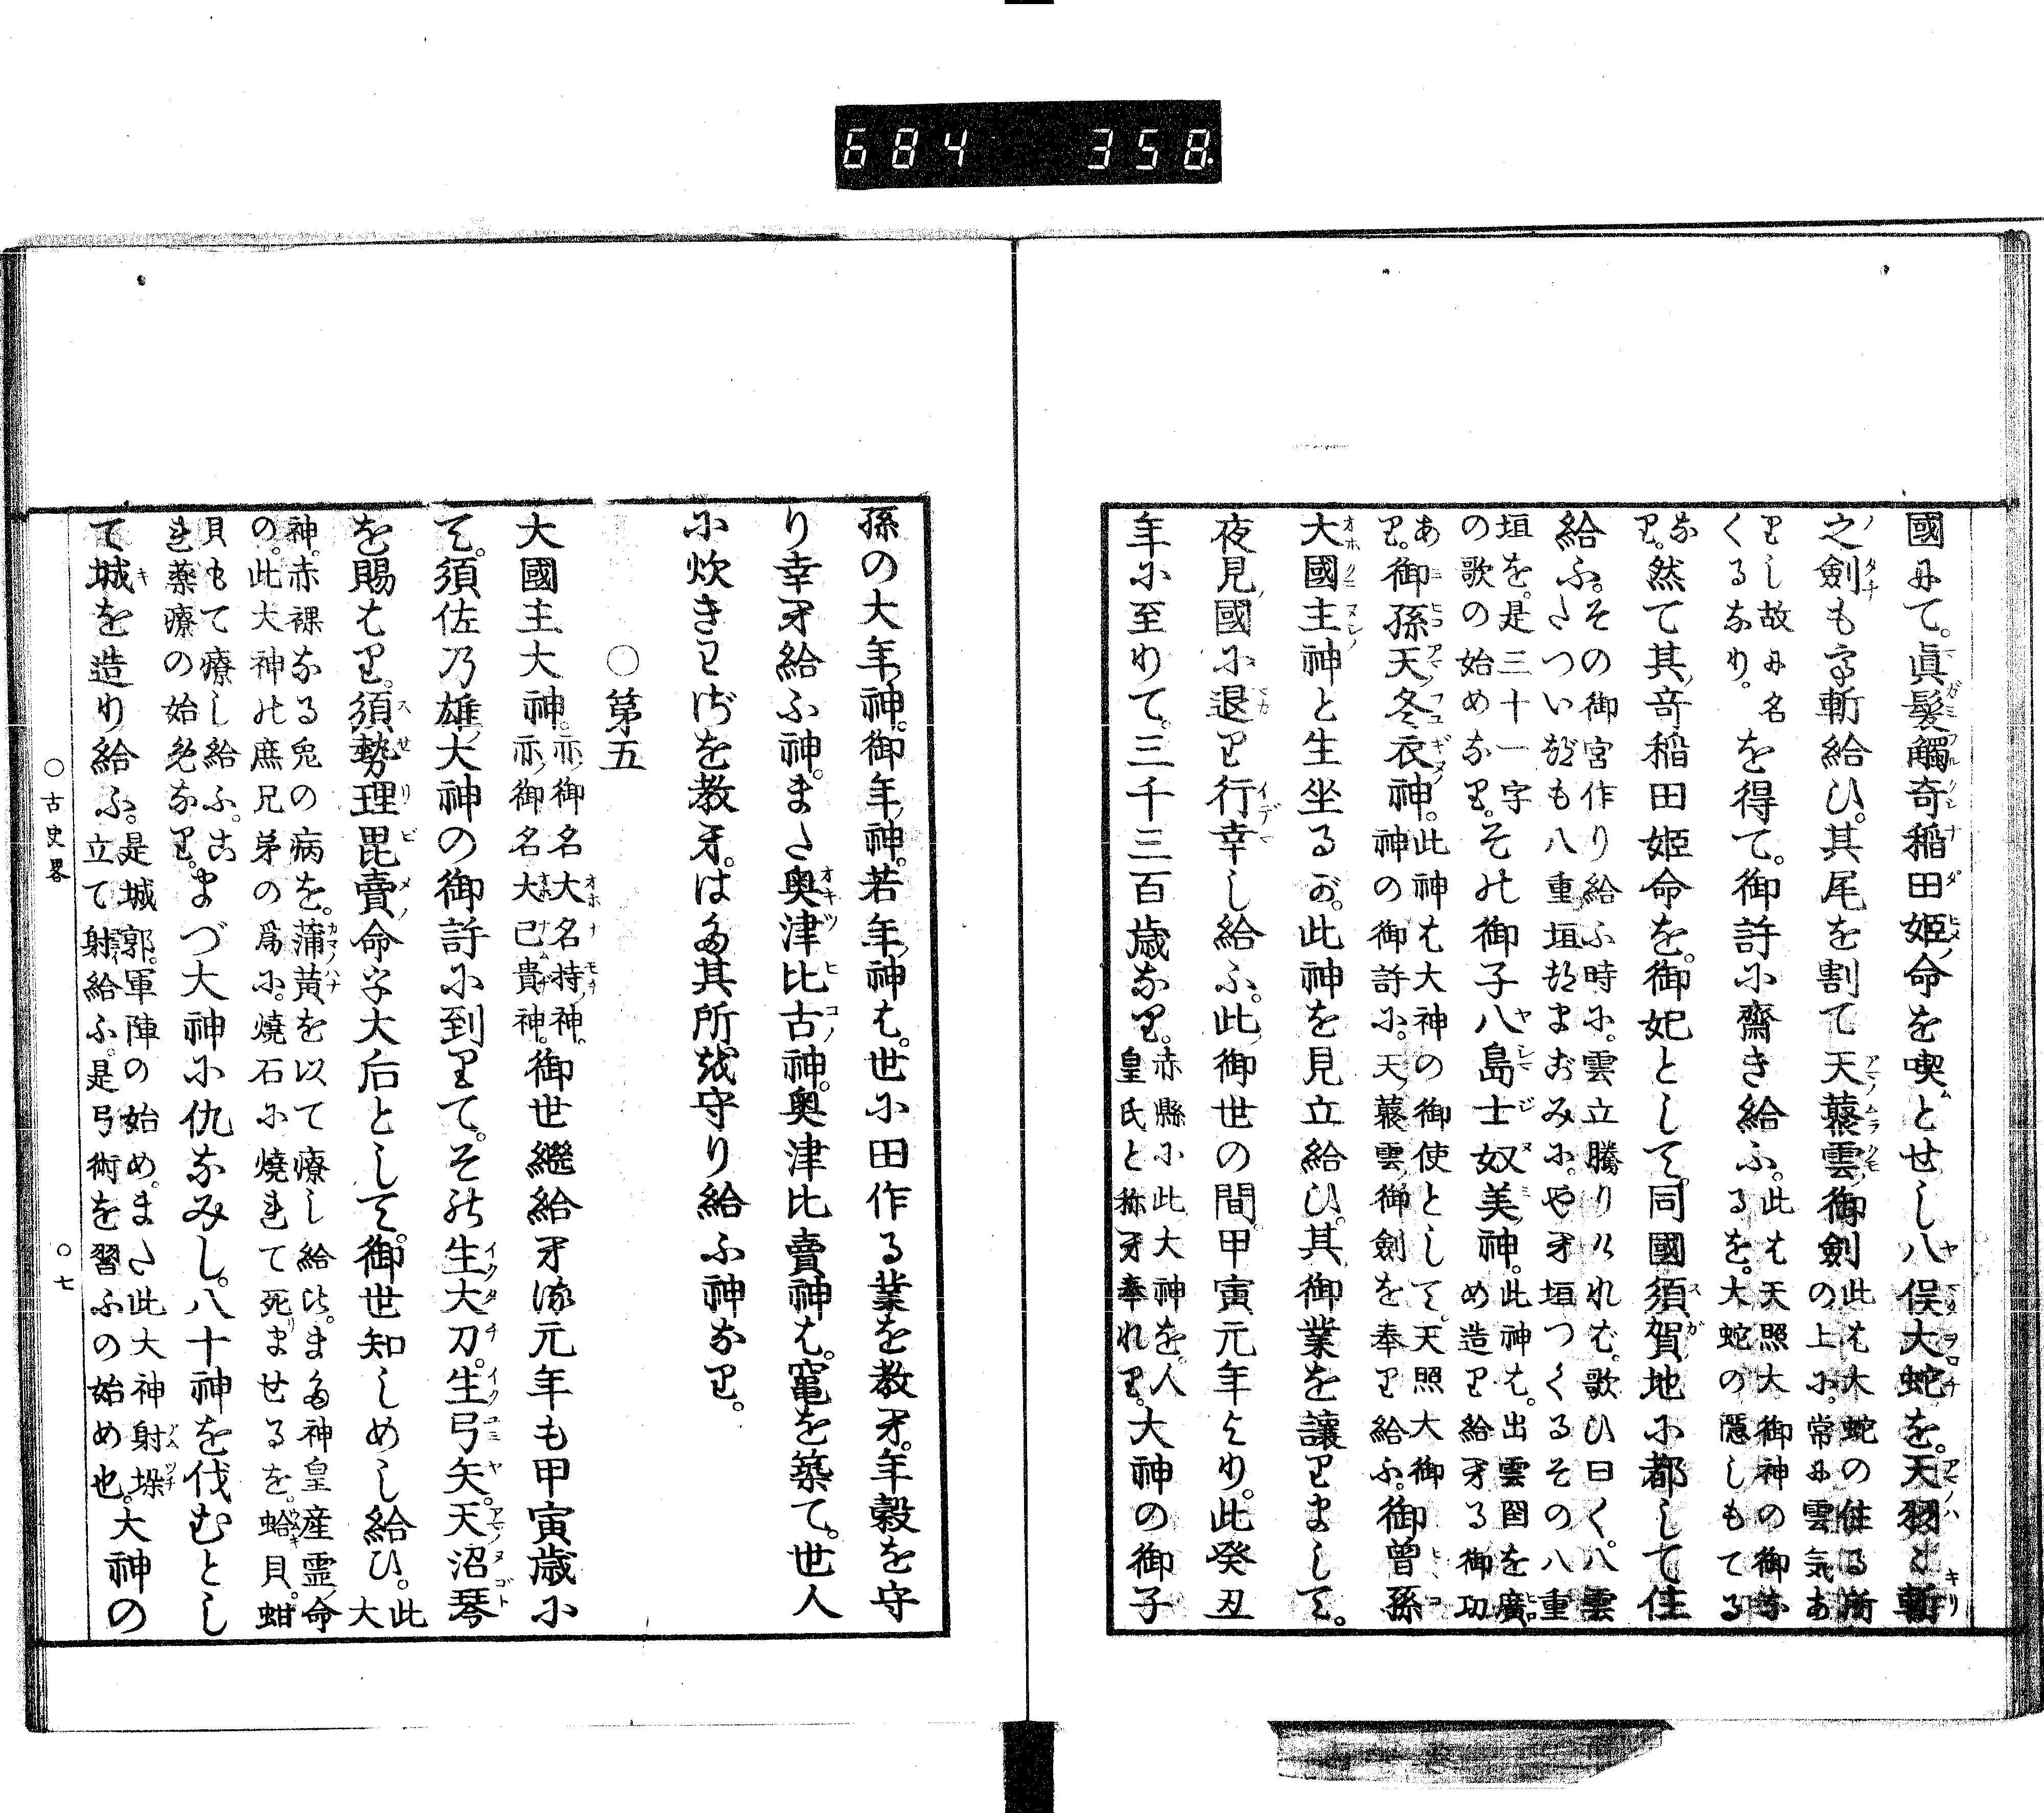 684 358
國にて。眞髮觸奇稲田姫命を喫とせし八俣大蛇を。天羽々斬
之劔もて斬給ひ。其尾を割て天藂雲御劔此は大蛇の住る所の上に。常に雲気あ
りし故に名くるなり。を得て。御許に齋き給ふ。此は天照大御神の御なるを。大蛇の隠しもてる
なり。然て其奇稲田姫命を。御妃として。同國須賀地に都して住
給ふ。その御宮作り給ふ時に。雲立騰りければ。歌ひ曰く。八雲たついづも八重垣つまごみに。やへ垣つくるその八重
垣を。是三十一字の歌の始めなり。その御子八島士奴美神。此神は。出雲国を廣め造り給へる御功
あり。御孫天冬衣神。此神は大神の御使として。天照大御神の御許に。天藂雲御劔を奉り給ふ。御曽孫
大國主神と生坐るが。此神を見立給ひ。其御業を讓りまして。
夜見國に退り行幸し給ふ。此御世の間。甲寅元年より。此癸丑
年に至りて。三千三百歳なり。赤縣に此大神を。人皇氏と称へ奉れり。大神の御子
孫の大年神。御年神。若年神は。世に田作る業を教へ。年穀を守
り幸へ給ふ神。また奥津比古神。奥津比賣神は。竈を築て。世人
に炊きわざを教へ。はた其所を守り給ふ神なり。
○第五
大國主大神。亦御名大名持神。亦御名大己貴神。御世繼給へる元年も甲寅歳に
て。須佐乃雄大神の御許に到りて。その生大刀。生弓矢。天沼琴
を賜はり。須勢理毘賣命を大后として。御世知しめし給ひ。此大
神。赤裸なる兎の病を。蒲黄を以て療し給ひ。また神皇産霊命の。此大神の庶兄弟の爲に。燒石に燒れて死ませるを。蛤貝。蚶
貝もて療し給ふ。これ薬療の始めなり。まづ大神に仇なみし。八十神を伐むとし
て城を造り給ふ。是城郭。軍陣の始め。また此大神射垛立て射給ふ。是弓術を習ふの始め也。大神の
○古史畧
○七